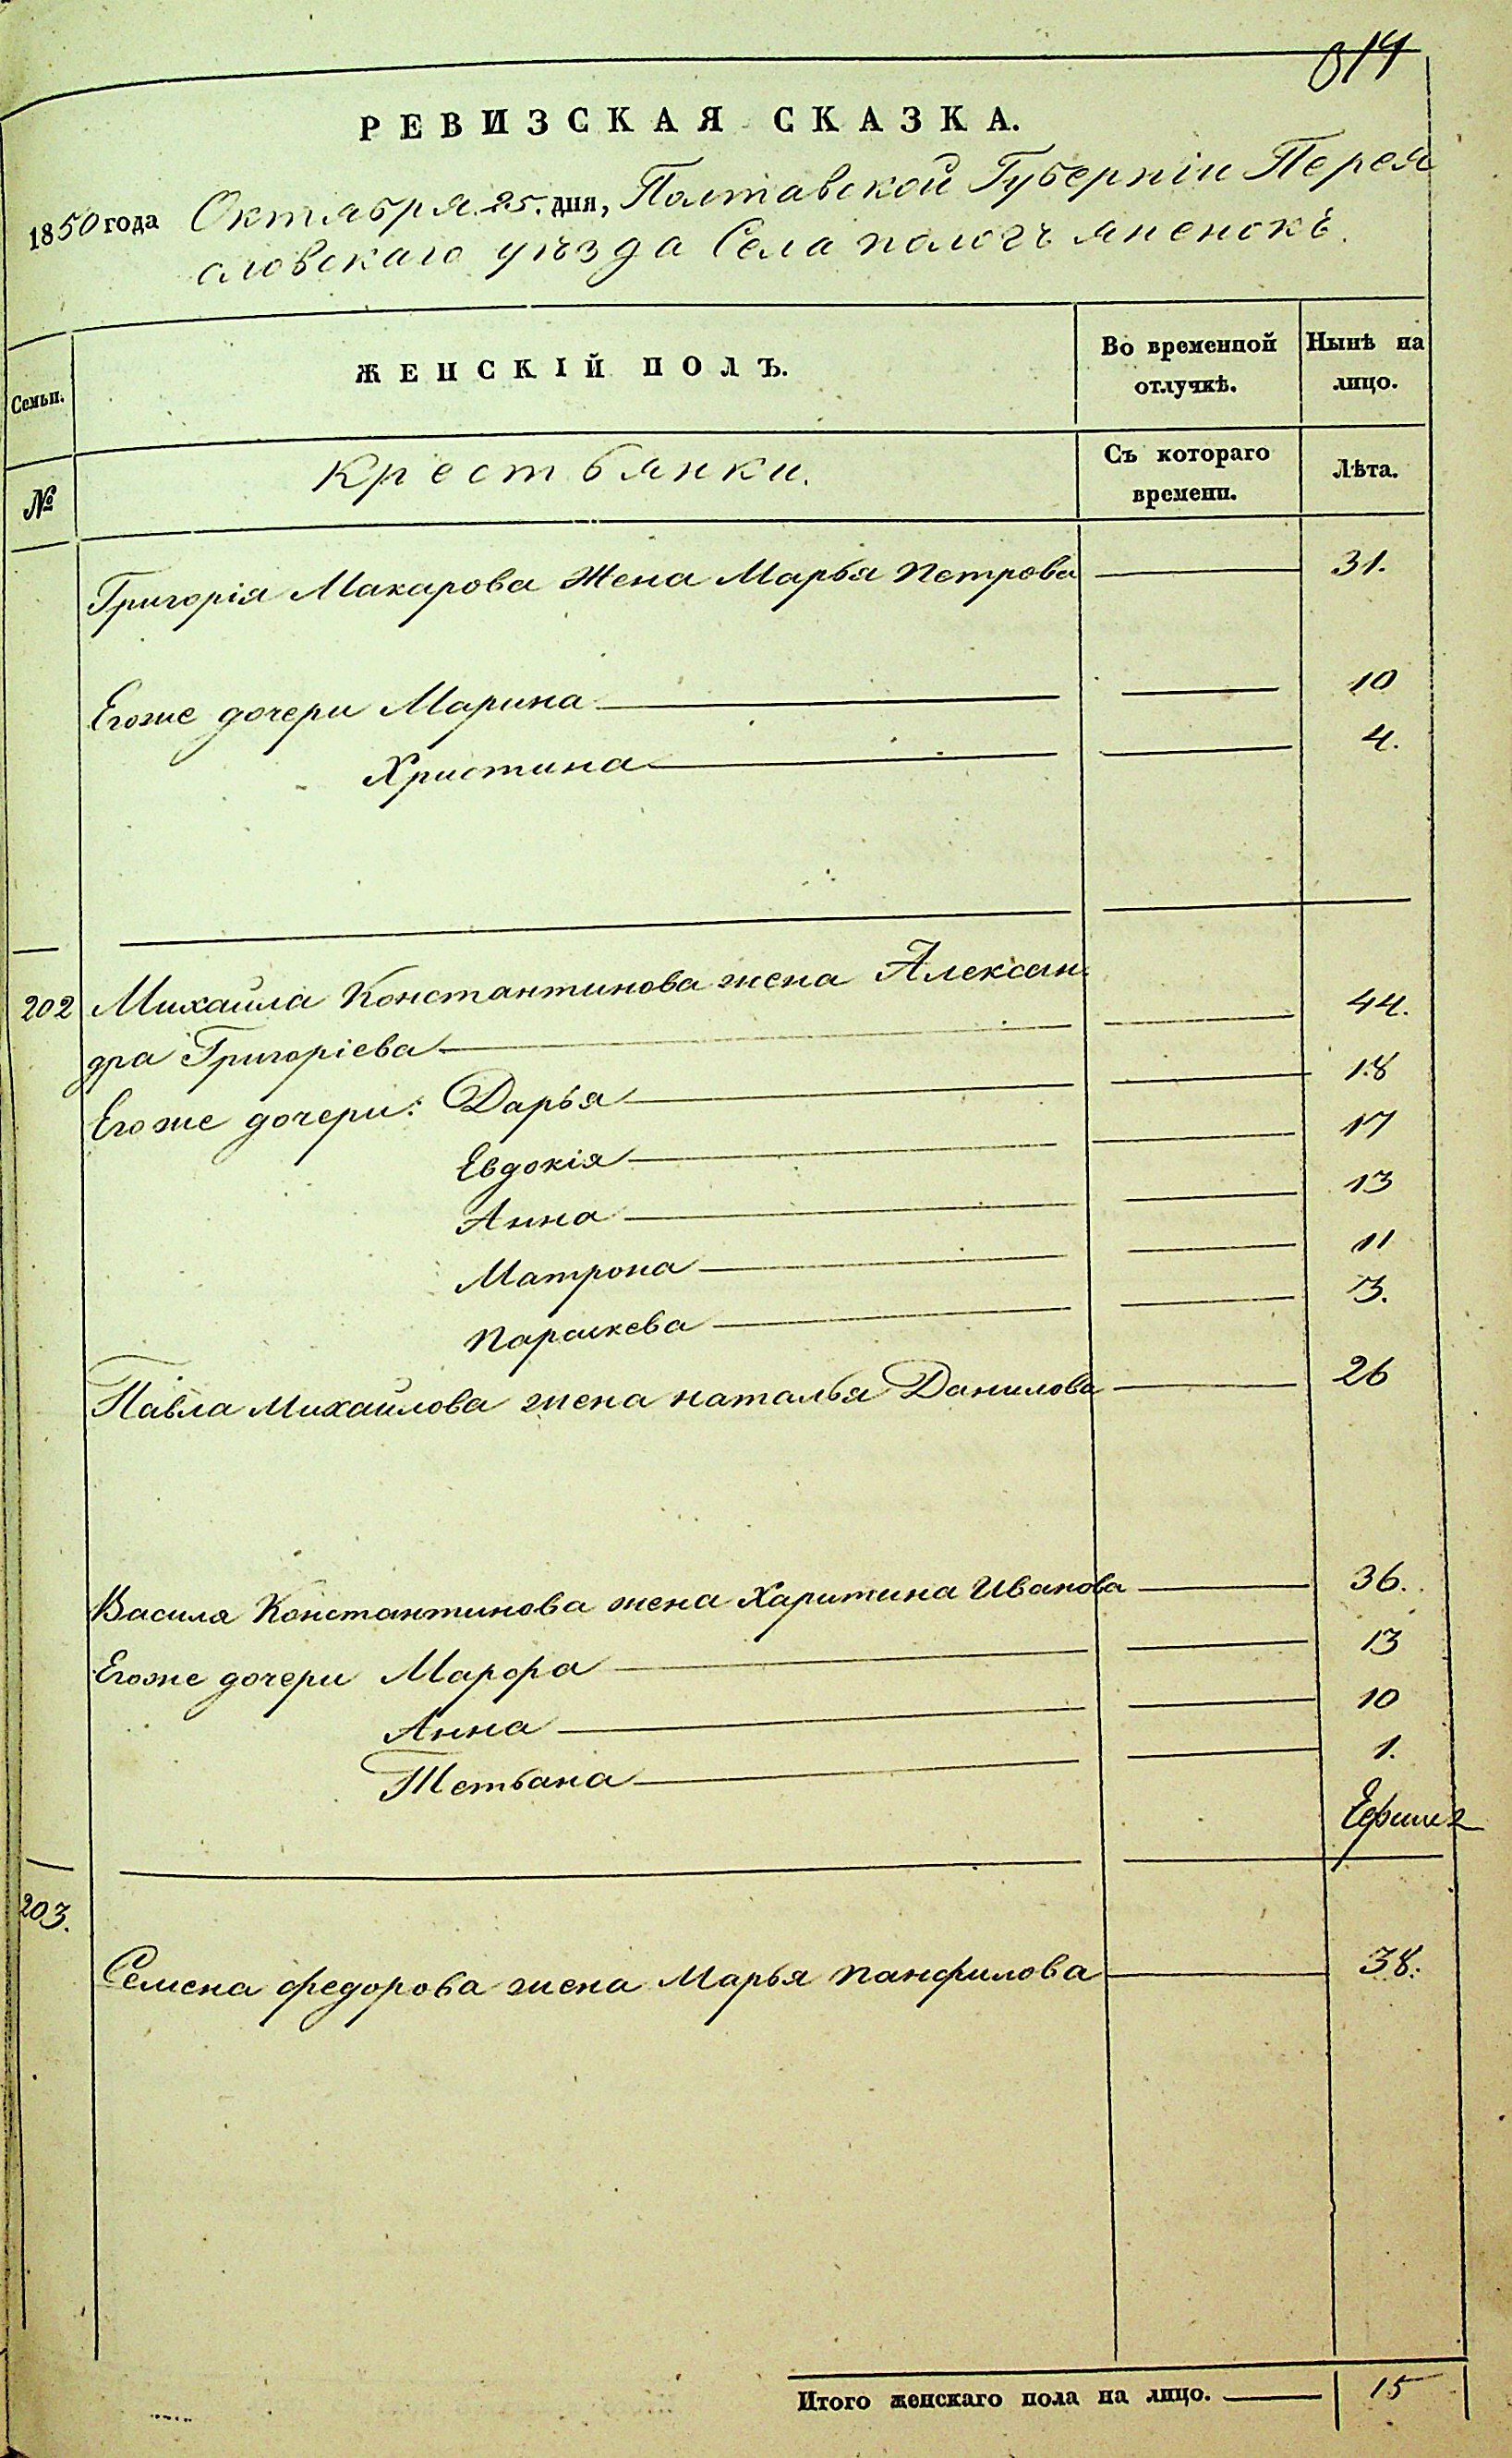 814
РЕВИЗСКАЯ СКАЗКА.
1850 года Октября 25. дня, Полтавской Губерніи Перея
словскаго уѣзда Села пологъ яненокъ.
Семьи.
ЖЕНСКІЙ ПОЛЪ.
Во временной отлучкѣ.
Нынѣ на лицо.
№
Крестьянки.
Съ котораго времени.
Лѣта.
Григорія Макарова Жена Марья Петрова 31.
Егоже дочери Марина 10
Христина 4.
202 Михаила Константинова жена Алексан-
дра Григоріева 44.
Егоже дочери: Дарья 18
Евдокія 17
Анна 13
Матрона 11
Параскева 3.
Павла Михайлова жена наталья Данилова 26
Василя Константинова жена Харитина Иванова 36.
Егоже дочери Марфа 13
Анна 10
Тетьана 1.
203.
Семена федорова жена Марья панфилова 38.
Итого женскаго пола на лицо. 15